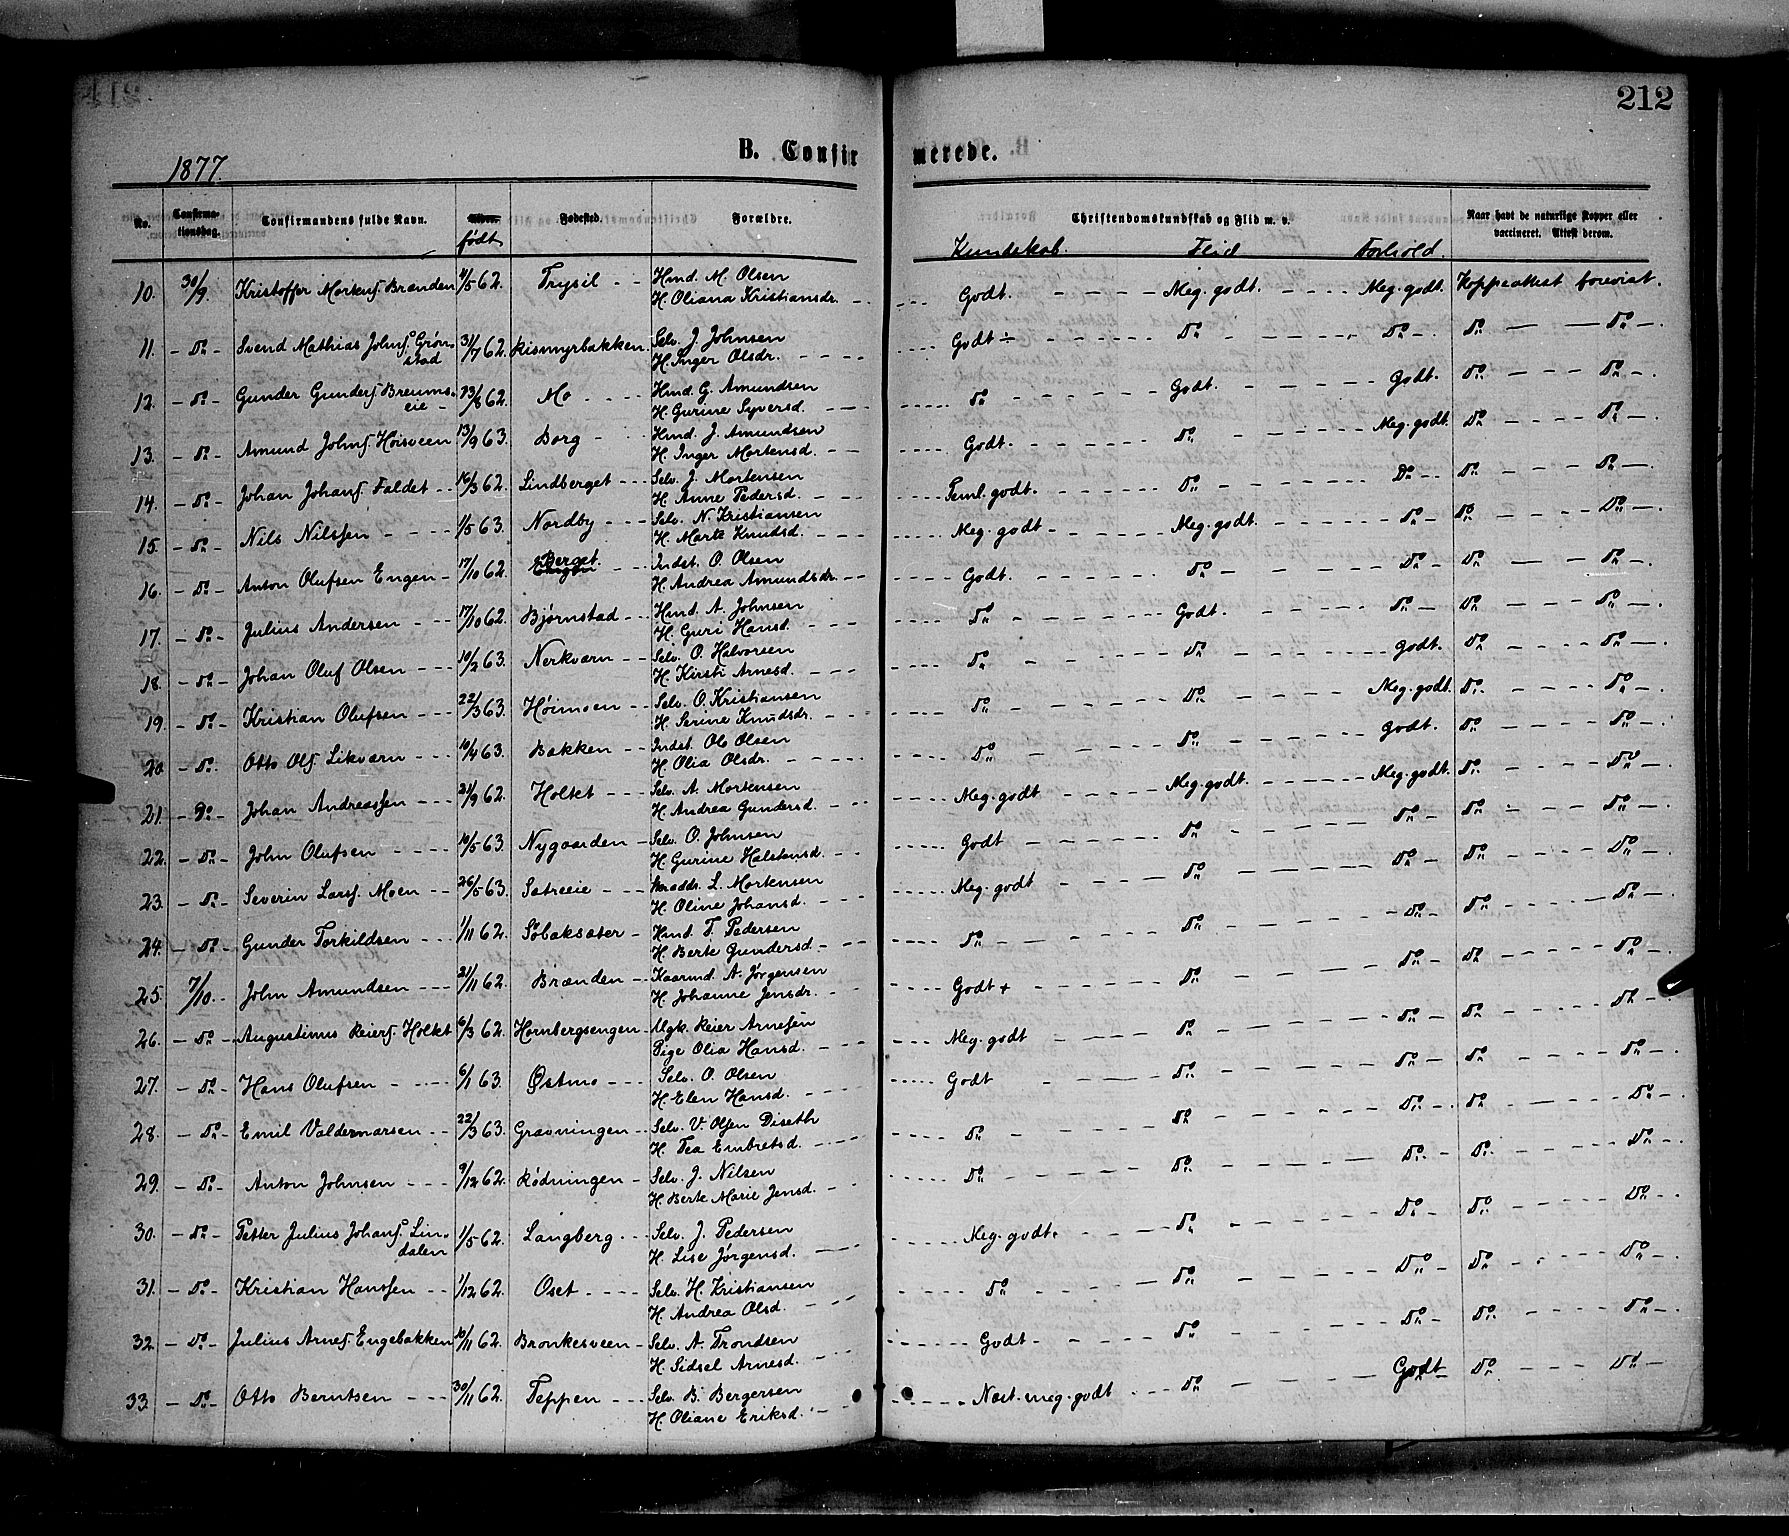 212
1877.
B. Confirmerede.
No. Confirmationsdag. Confirmandens fulde Navn. Alder. født Fødested. Forældre. Christendomskundskab og Flid m. v. Naar havt de naturlige Kopper eller vaccineret. Attest derom.
Kundskab. Flid Forhold.
10. 30/9. Kristoffer Markusſ. Brænden 4/5 62. Trysil Hmd. M. Olsen
H. Oliana Kristiansdr. Godt. Meg. godt. Meg. godt. Koppeattest forevist.
11. Do Svend Mathias Johnſ. Grønstad 31/7 62. Rismyrbakken Selv. J. Johnsen
H. Inger Olsdr. Godt ÷ Do Do Do Do
12. Do Gunder Gunderſ. Breumseie 62. Mo Hmd. G. Amundsen
H. Gurine Syversd. Do Godt. Godt. Do Do
13. Do Amund Johnſ. Høisveen 13/9 63. Borg Hmd. J. Amundsen
H. Inger Mortensd. Godt. Do Meg. godt. Do Do
14. Do Johan Johanſ. Faldet 16/3 62. Lindberget Selv. J. Mortensen
H. Anne Pedersd. Teml. godt. Do Do Do Do
15. Do Nils Nilsſen 1/5 63. Nordby Selv. N. Kristiansen
H. Marte Knudsd. Meg. godt Meg. godt. Do Do Do
16. Do Anton Olufsen Engen 17/10 62. Berget. Indst. O. Olsen
H. Andrea Amundsdr. Godt. Do Do Do Do
17. Do Julius Andersen 17/10 62. Bjørnstad Hmd. A. Johnsen
H. Guri Hansd. Do Godt. Do Do Do
18. Do Johan Oluf Olsen 10/2 63. Nerkvern Selv. O. Halvorsen
H. Kirsti Arnesd. Do Do Godt. Do Do
19. Do Kristian Olufsen 22/3 63. Høimoen Selv. O. Kristiansen
H. Serine Knudsdr. Do Do Meg. godt. Do Do
20. Do Otto Olſ. Likværn 10/4 63. Bakken Indst. Ole Olsen
H. Olia Olsdr. Do Do Godt. Do Do
21. Do Johan Andreasſen 21/9 62. Holtet Selv. A. Mortensen
H. Andrea Gundersd. Meg. godt Meg. godt. Meg. godt. Do Do
22. Do John Olufsen 10/5 63. Nygaarden Selv. O. Johnsen
H. Gurine Halstensd. Godt Do Do Do Do
23. Do Severin Larsſ. Moen 26/5 63. Sætreeie L. Mortensen
H. Oline Johansd. Meg. godt Do Do Do Do
24. Do Gunder Torkildsen 1/11 62. Søbaksæter Hmd. T. Pedersen
H. Berte Gundersd. Do Do Do Do Do
25. 7/10. John Amundsen 21/11 62. Brænden Kaarmd. A. Jørgensen
H. Johanne Jensdr. Godt + Do Do Do Do
26. Do Augustinus Reierſ. Holtet 6/3 62. Hornbergsengen Ugk. Reier Arnesen
Pige Olia Hansd. Meg. godt Do Do Do Do
27. Do Hans Olufsen 6/1 63. Østmo Selv. O. Olsen
H. Elen Hansd. Godt Do Do Do Do
28. Do Emil Valdemarsen 22/3 63. Gravningen Selv. V. Olſen Diseth
H. Tea Embretsd. Do Do Do Do Do
29. Do Anton Johnsen 9/12 62. Rødningen Selv. J. Nilsen
H. Berte Marie Jensd. Do Do Do Do Do
30. Do Petter Julius Johanſ. Lindalen 1/5 62. Langberg Selv. J. Pedersen
H. Lise Jørgensd. Meg. godt. Do Do Do Do
31. Do Kristian Hansſen 1/12 62. Oset Selv. H. Kristiansen
H. Andrea Olsd. Do Do Do Do Do
32. Do Julius Arneſ. Engebakken 10/11 62. Bronkesveen Selv. A. Trondsen
H. Sidsel Arnesd. Godt Do Do Do Do
33. Do Otto Berntsen 30/11 62. Teppen Selv. B. Bergersen
H. Oliane Eriksd. Næst. meg. godt Do Godt Do Do